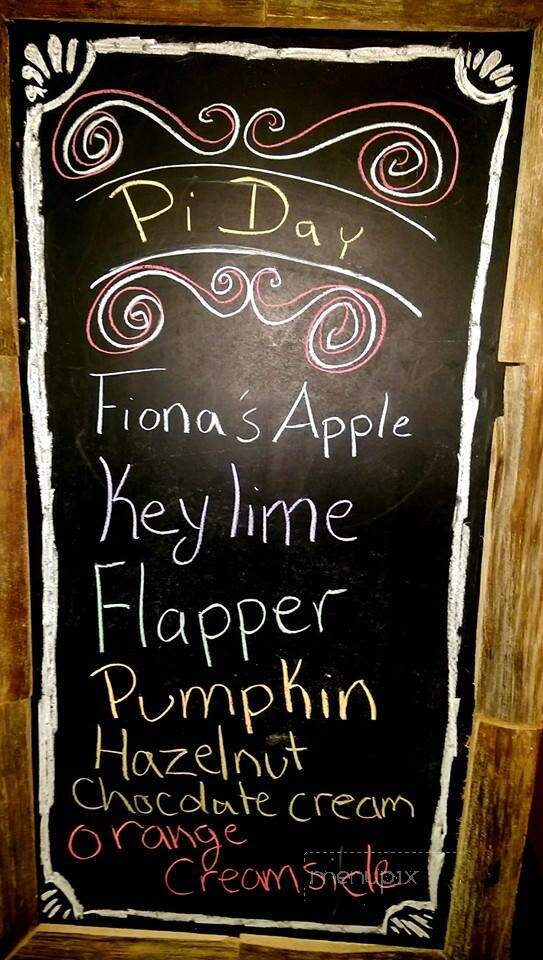 Pi Day
Fiona's Apple
Key lime
Flapper
Pumpkin
Hazelnut
Chocolate cream
Orange
Creamsikle
menupix